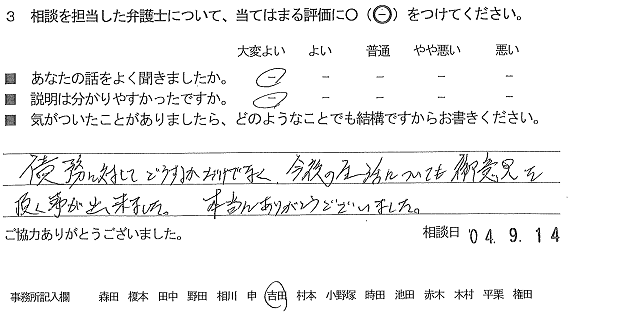 3 相談を担当した弁護士について、当てはまる評価に○(⊖)をつけてください。
大変よい よい 普通 やや悪い 悪い
■ あなたの話をよく聞きましたか。 － － － － －
■ 説明は分かりやすかったですか。 － － － － －
■ 気がついたことがありましたら、どのようなことでも結構ですからお書きください。
債務に対してどうするかだけでなく、今後の生活についても御意見を
頂く事が出来ました。 本当にありがとうございました。
ご協力ありがとうございました。 相談日 '04.9.14
事務所記入欄 森田 榎本 田中 野田 相川 申 吉田 村本 小野塚 時田 池田 赤木 木村 平栗 権田